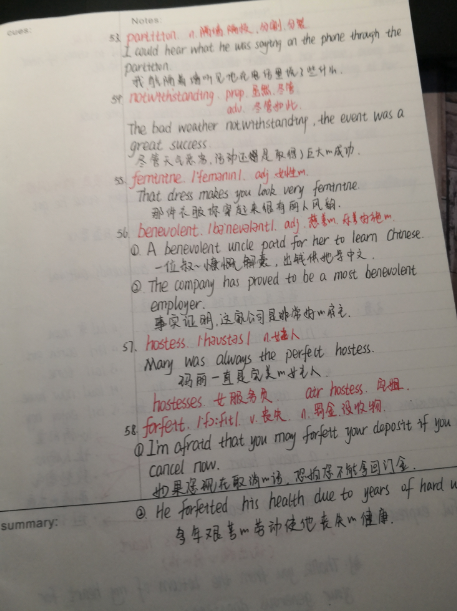 cues:
Notes:
53. partition n.隔墙 隔板, 分割, 分裂
I could hear what he was saying on the phone through the
partition.
我能隔着墙听见他在电话里说了些什么.
54. notwithstanding. prep. 虽然, 尽管
adv. 尽管如此.
The bad weather notwithstanding, the event was a
great success.
尽管天气恶劣, 活动还是取得了巨大的成功.
55. feminine. /'femənɪn/. adj 女性的.
That dress makes you look very feminine.
那件衣服你穿起来很有女人风韵.
56. benevolent. /bə'nevələnt/. adj. 慈善的.
① A benevolent uncle paid for her to learn Chinese.
一位叔叔慷慨解囊, 出钱供她学中文.
② The company has proved to be a most benevolent
employer.
事实证明, 这家公司是非常好的雇主.
57. hostess. /'həʊstəs/ n.女主人
Mary was always the perfect hostess.
玛丽一直是完美的女主人.
hostesses 女服务员 air hostess. 空姐.
58. forfeit. /'fɔ:fɪt/ v.丧失 n.罚金, 没收物.
① I'm afraid that you may forfeit your deposit if you
cancel now.
如果您现在取消的话, 恐怕您不能拿回订金.
② He forfeited his health due to years of hard
summary:
多年艰苦的劳动使他丧失的健康.